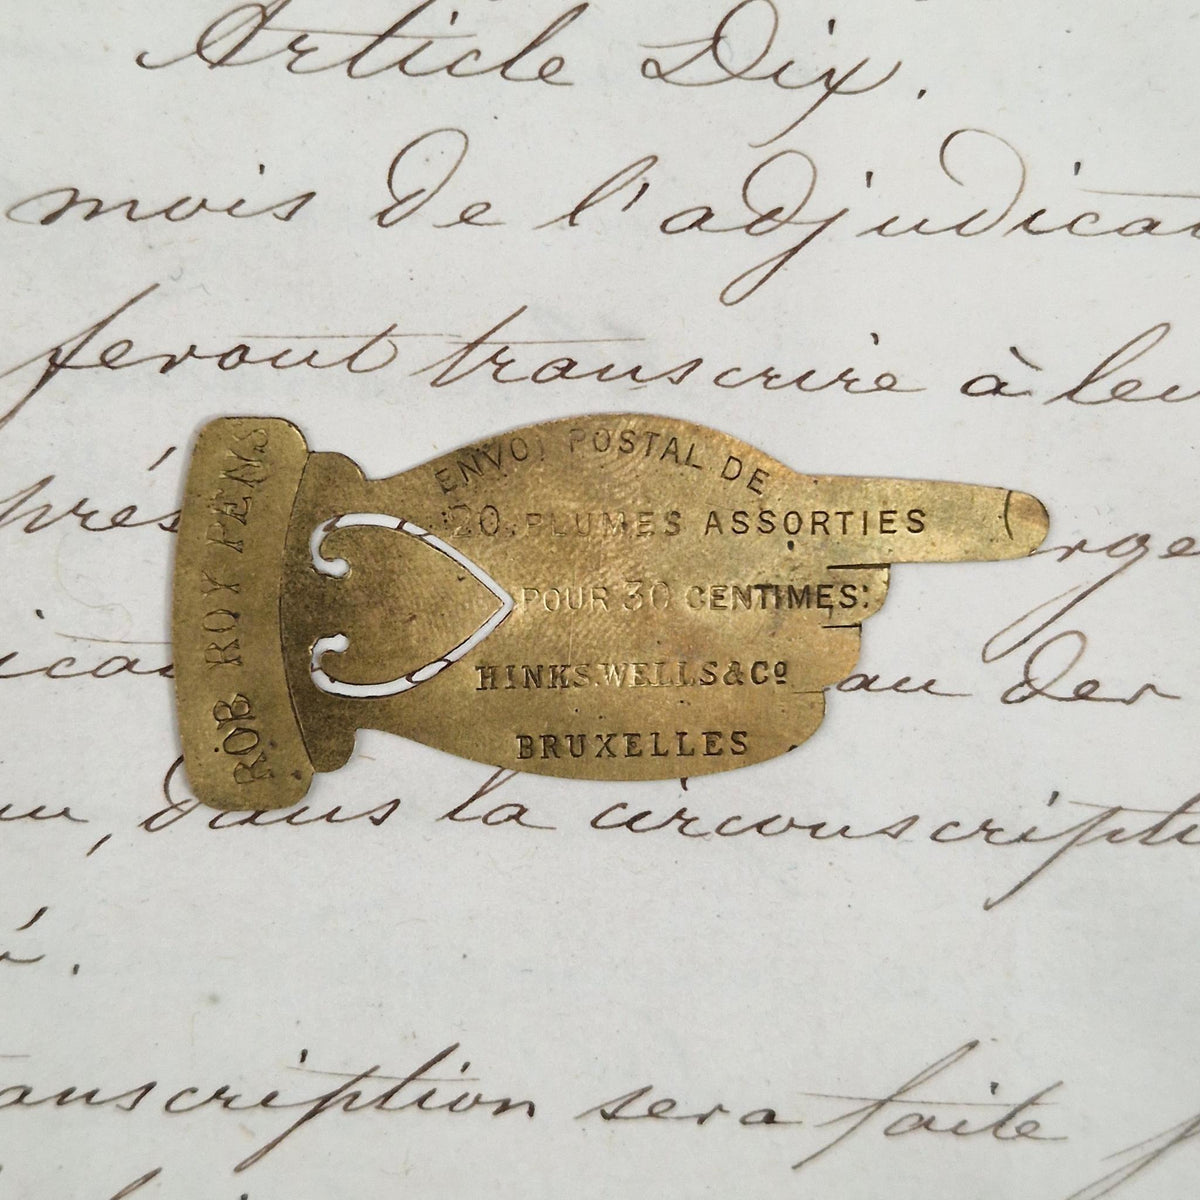 Article Dix.
mois de l'adjudicat
feront transcrire à leu
près
ROB ROY PENS
ENVOI POSTAL DE
20. PLUMES ASSORTIES
POUR 30 CENTIMES:
HINKS.WELLS&Cº
BRUXELLES
au der
dans la circonscripti
é.
anscription sera faite